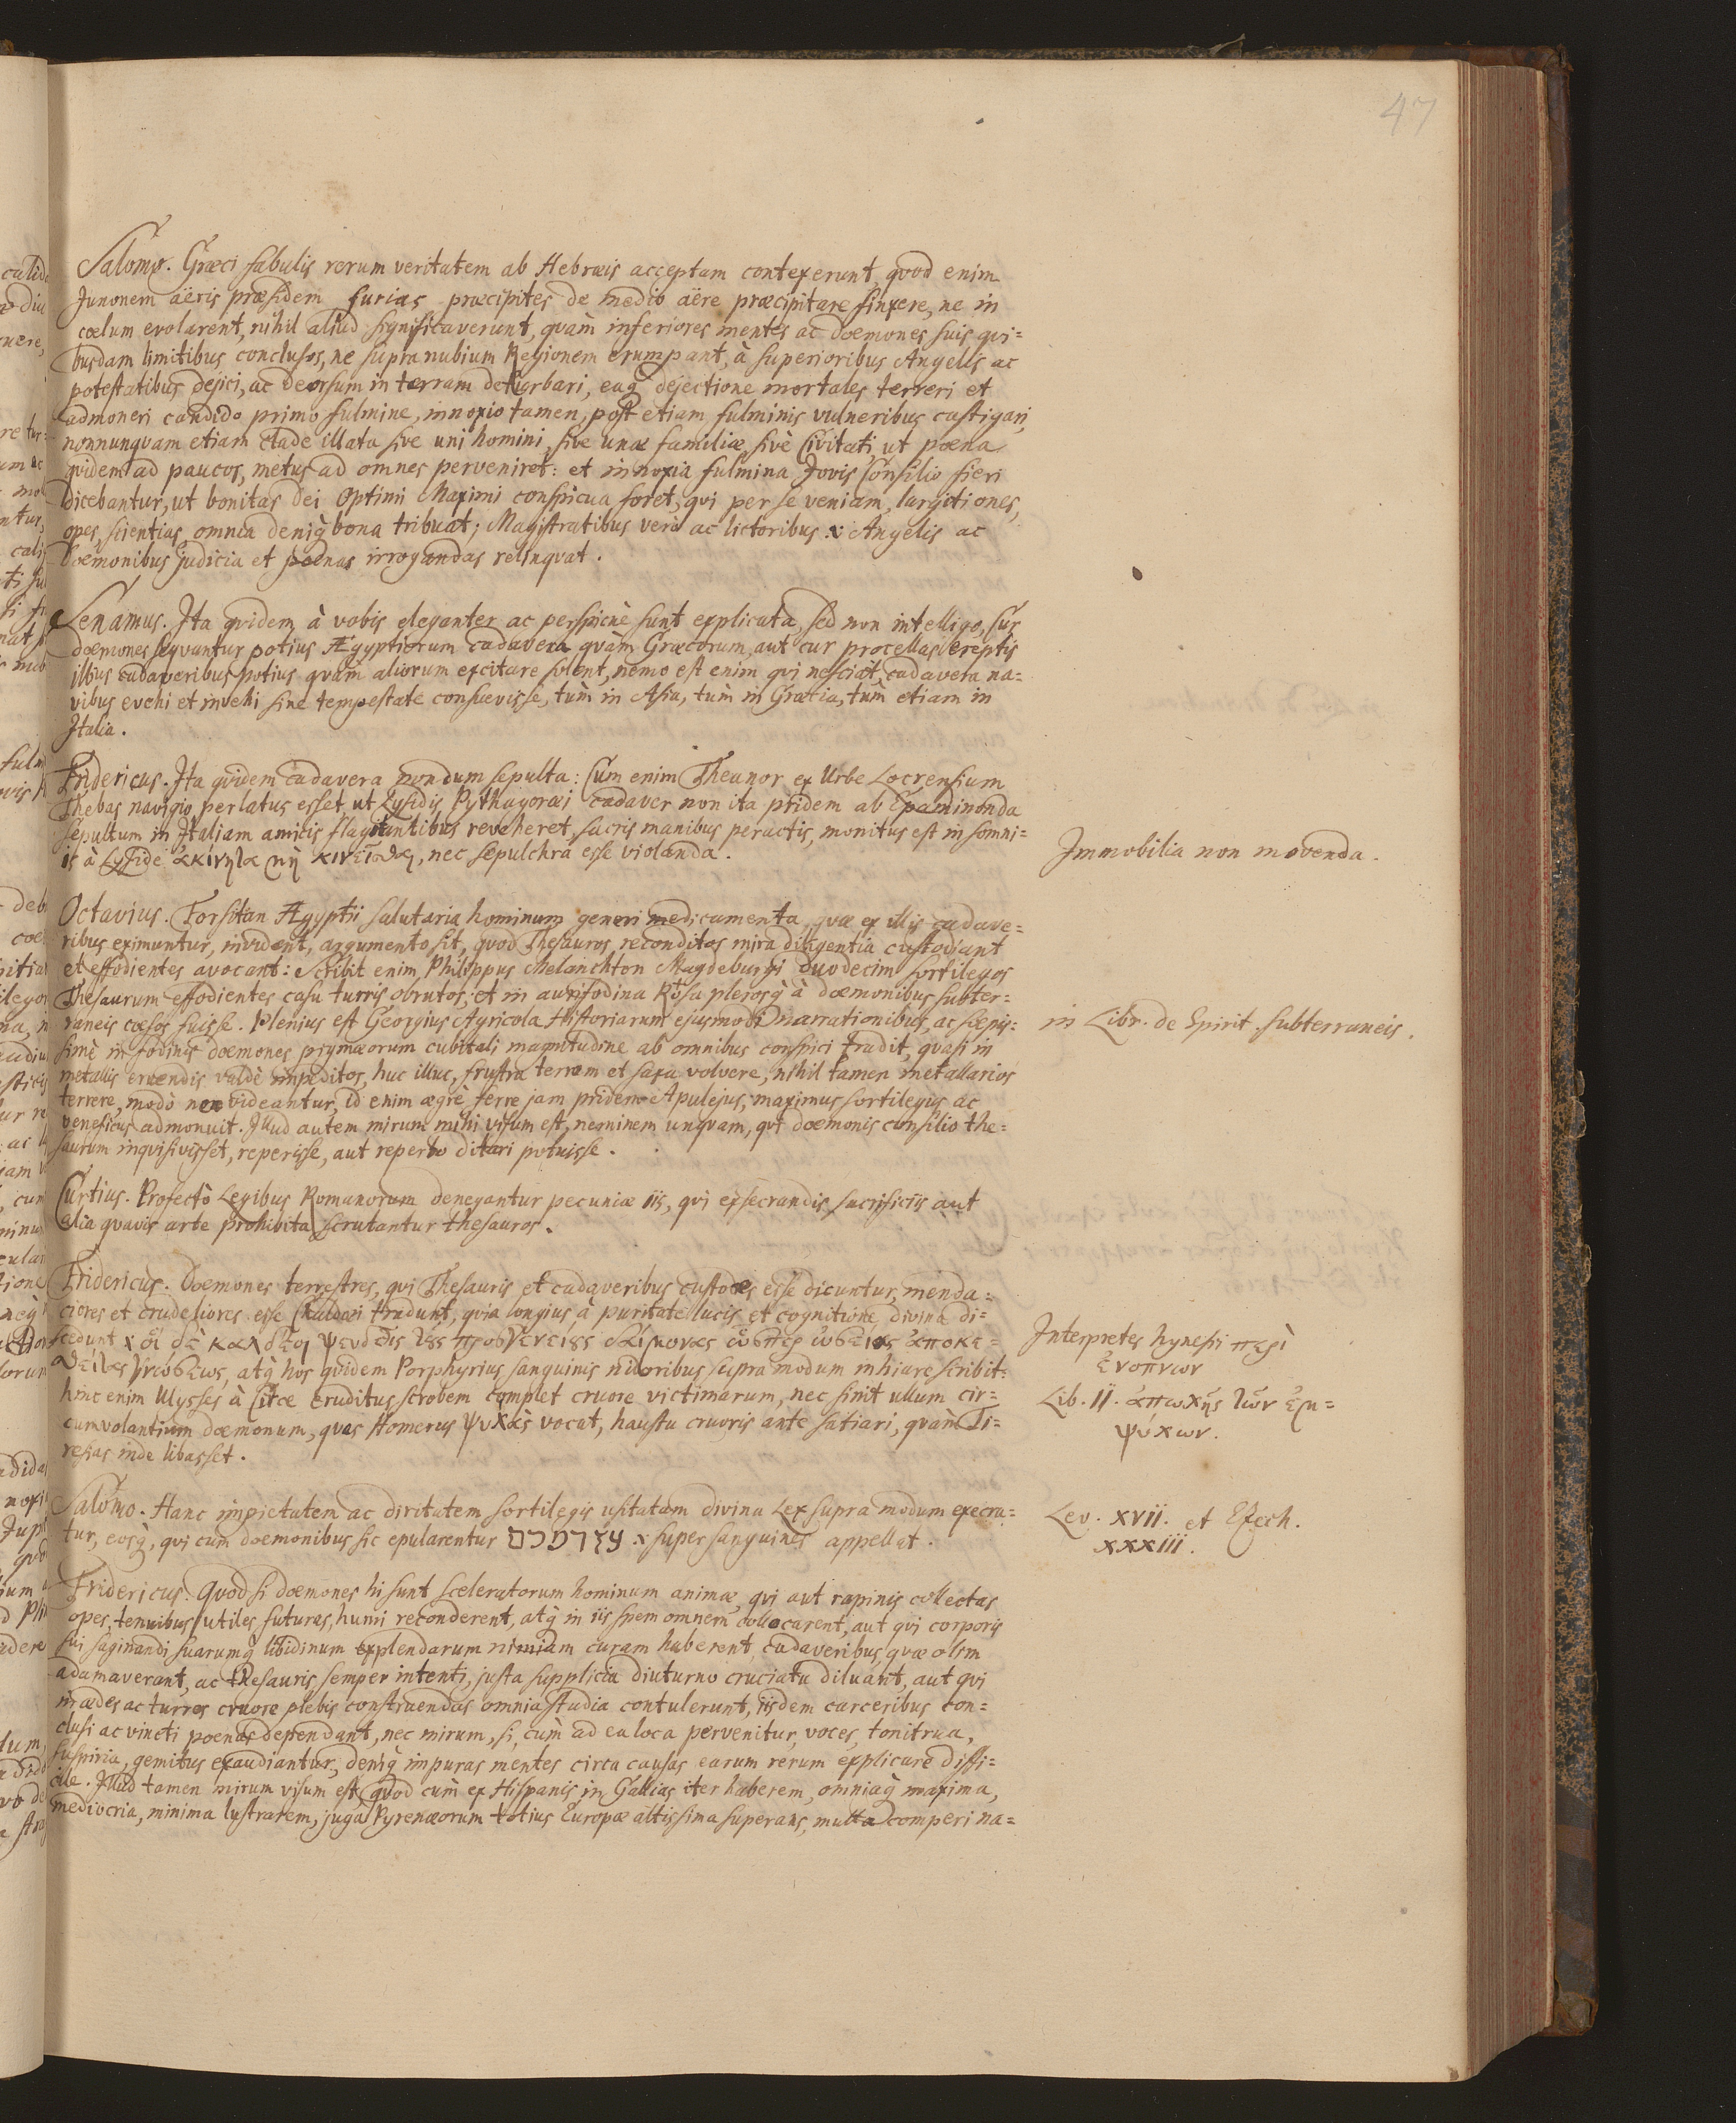 47
Salomo. Græci fabulis rerum veritatem ab Hebræis acceptam contexerunt, qvod enim
Junonem aëris præsidem furias præcipites de medio aëre præcipitare finxere, ne in
cœlum evolarent, nihil aliud significaverunt, qvam inferiores mentes ac dæmones suis qvi=
busdam limitibus conclusos, ne supra nubium Regionem erumpant, à superioribus Angelis ac
potestatibus dejici, ac deorsum in terram deturbari, eaq dejectione mortales terreri et
admoneri candido primo fulmine, innoxio tamen, post etiam fulminis vulneribus castigari,
nonnunqvam etiam clade illata sive uni homini, sive unæ familiæ, sivè Civitati, ut poena
qvidem ad paucos, metus ad omnes perveniret: et innoxia fulmina Jovis Consilio fieri
dicebantur, ut bonitas Dei Optimi Maximi conspicua foret, qvi per se veniam, largitiones,
opes, scientias, omnia deniq bona tribuat; Magistratibus verò ac lictoribus x Angelis ac
dæmonibus judicia et poenas irrogandas relinqvat.
Senamus. Ita qvidem à vobis eleganter ac perspicuè sunt explicata, sed non intelligo, Cur
dæmones seqvantur potius Ægyptiorum cadavera qvàm Græcorum, aut cur procellas ereptis
illius cadaveribus potius qvàm aliorum excitare solent, nemo est enim qvi nesciat, cadavera na=
vibus evehi et invehi sine tempestate consuevisse, tùm in Asia, tùm in Græcia, tùm etiam in
Italia.
Fridericus. Ita qvidem cadavera nondum sepulta: Cum enim Theanor ex Urbe Locrensium
Thebas navigio perlatus esset, ut Lysidis Pythagoræi cadaver non ita pridem ab Epaminonda
sepultum in Italiam amicis flagitantibus reveheret, sacris manibus peractis, monitus est in somni=
is à Lyside ἀκίνητα μὴ κινεῖσθαι, nec sepulchra esse violanda.
Immobilia non movenda.
Octavius. Forsitan Ægyptii salutaria hominum generi medicamenta, qvæ ex illis cadave=
ribus eximuntur, invident, argumento sit, qvod Thesauros, reconditos mira diligentia custodiant
et effodientes avocant: Scribit enim Philippus Melanchton Magdeburgi duodecim sortilegos
Thesaurum effodientes casu turris obrutos, et in aurifodina Rosa plerosq à dæmonibus subter=
raneis cæsos fuisse. Plenius est Georgius Agricola Historiarum ejusmodi narrationibus, ac sæpis=
simè in fodinis dæmones pigmæorum cubitali magnitudine ab omnibus conspici tradit, qvasi in
metallis eruendis valdè impeditos, huc illuc, frustra terram et saxa volvere, nihil tamen metallarios
terrere, modò non videantur, id enim ægrè ferre jam pridem Apulejus, maximus sortilegus ac
veneficus admonuit. Illud autem mirum mihi visum est, neminem unqvam, qvi dæmonis consilio the=
saurum inqvisivisset, reperisse, aut reperto ditari potuisse.
in Libr. de Spirit. subterraneis.
Curtius. Profectò Legibus Romanorum denegantur pecuniæ iis, qvi exsecrandis sacrificiis aut
alia qvavis arte prohibita scrutantur thesauros.
Fridericus. Dæmones terrestres, qvi Thesauris et cadaveribus custodes esse dicuntur, menda=
ciores et crudeliores esse Chaldæi tradunt, qvia longius à puritate lucis et cognitione, divina di=
scedunt x οἱ δὲ καλδεοι ψευδεῖς τες προσγενειες δαίμονας ὥσπερ ὠσειας ἀποκε=
θείσας γνώσεως, atq hos qvidem Porphyrius sanguinis nidoribus supra modum inhiare scribit:
hinc enim Ulysses à Circe eruditus scrobem complet cruore victimarum, nec sinit ullum cir=
cumvolantium dæmonum, qvas Homerus ψυχὰς vocat, haustu cruoris ante satiari, qvàm Ti=
resias inde libasset.
Interpretes Synesii περὶ
ἐνοπνιων
Lib. II. ἀπωχῆς τῶν ἐμ=
ψύχων.
Salomo. Hanc impietatem ac diritatem sortilegis usitatam divina Lex supra modum execra=
tur, eosq, qvi cum dæmonibus sic epularentur x super sanguines appellat.
Lev. XVII. et Esech.
XXXIII.
Fridericus. Qvod si dæmones hi sunt sceleratorum hominum animæ, qvi aut rapinis collectas
opes, tenuibus utiles futuras, humi reconderent, atq in iis spem omnem collocarent, aut qvi corporis
sui saginandi suarumq libidinum explendarum nimiam curam haberent, cadaveribus qvæ olim
adamaverant, ac thesauris semper intenti, justa supplicia diuturno cruciatu diluant, aut qvi
in ædes ac turres cruore plebis construendas omnia studia contulerunt, iisdem carceribus con=
clusi ac vincti poenas dependant, nec mirum, si, cùm ad ea loca pervenitur, voces, tonitrua,
suspiria, gemitus exaudiantur, deniq impuras mentes circa causas earum rerum explicare diffi=
cile. Illud tamen mirum visum est, qvod cùm ex Hispanis in Gallias iter haberem, omniaq maxima,
mediocria, minima lustrarem, juga Pyrenæorum totius Europæ altissima superans, multa comperi na=